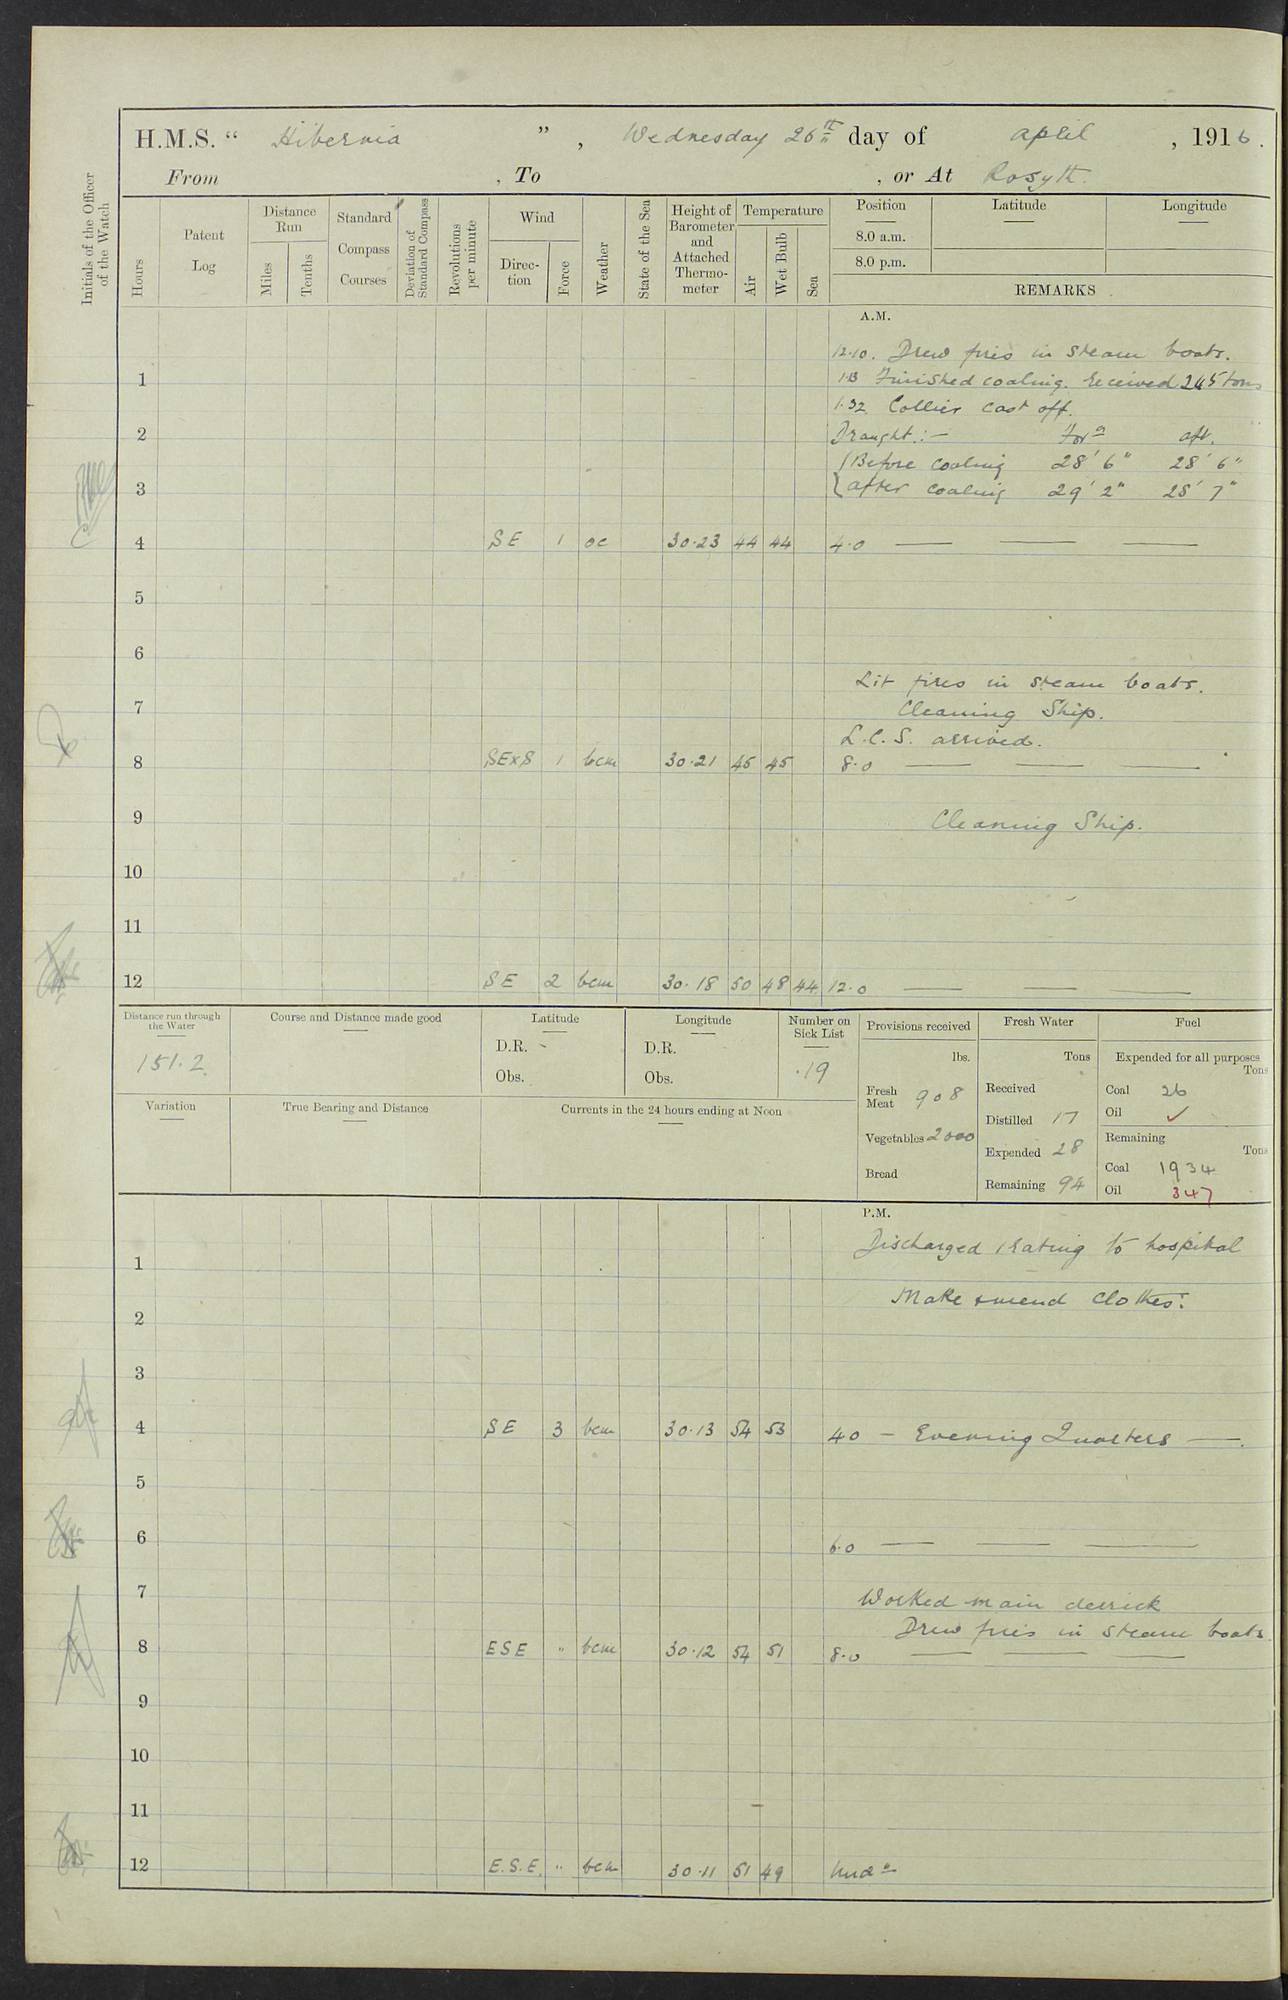 H.M.S. “ Hibernia ”, Wednesday 26th day of April, 1916.
From , To , or At Rosyth.
Initials of the Officer of the Watch
Hours
Patent Log
Distance Run
Miles
Tenths
Standard Compass Courses
Deviation of Standard Compass
Revolutions per minute
Wind
Direction
Force
Weather
State of the Sea
Height of Barometer and Attached Thermometer
Temperature
Air
Wet Bulb
Sea
Position Latitude Longitude
8.0 a.m.
8.0 p.m.
REMARKS
A.M.
12.10. Drew fires in steam boats.
1 1.13 Finished coaling. received 245 tons
1.32 Collier cast off.
2 Draught:— For'd aft.
{Before coaling 28' 6" 28' 6"
3 {after coaling 29' 2" 28' 7"
4 SE 1 oc 30.23 44 44 4.0 — — —
5
6
Lit fires in steam boats.
7 Cleaning Ship.
L.C.S. arrived.
8 SExS 1 bcm 30.21 45 45 8.0 — — —
9 Cleaning Ship.
10
11
12 SE 2 bcm 30.18 50 48 44 12.0 — — —
Distance run through the Water
151.2
Course and Distance made good
Latitude
D.R. -
Obs.
Longitude
D.R.
Obs.
Number on Sick List
19
Provisions received
lbs.
Fresh Meat 908
Vegetables 2000
Bread
Fresh Water
Tons
Received
Distilled 17
Expended 28
Remaining 94
Fuel
Expended for all purposes
Tons
Coal 26
Oil ✓
Remaining
Tons
Coal 1934
Oil 347
Variation
True Bearing and Distance
Currents in the 24 hours ending at Noon
P.M.
Discharged 1 rating to hospital
1
Make & mend clothes.
2
3
4 SE 3 bcm 30.13 54 53 4.0 — Evening Quarters —.
5
6 6.0 — — —
7 Worked main derrick
Drew fires in steam boats
8 ESE " bcm 30.12 54 51 8.0 — — —
9
10
11
12 E.S.E. " bcm 30.11 51 49 Midt